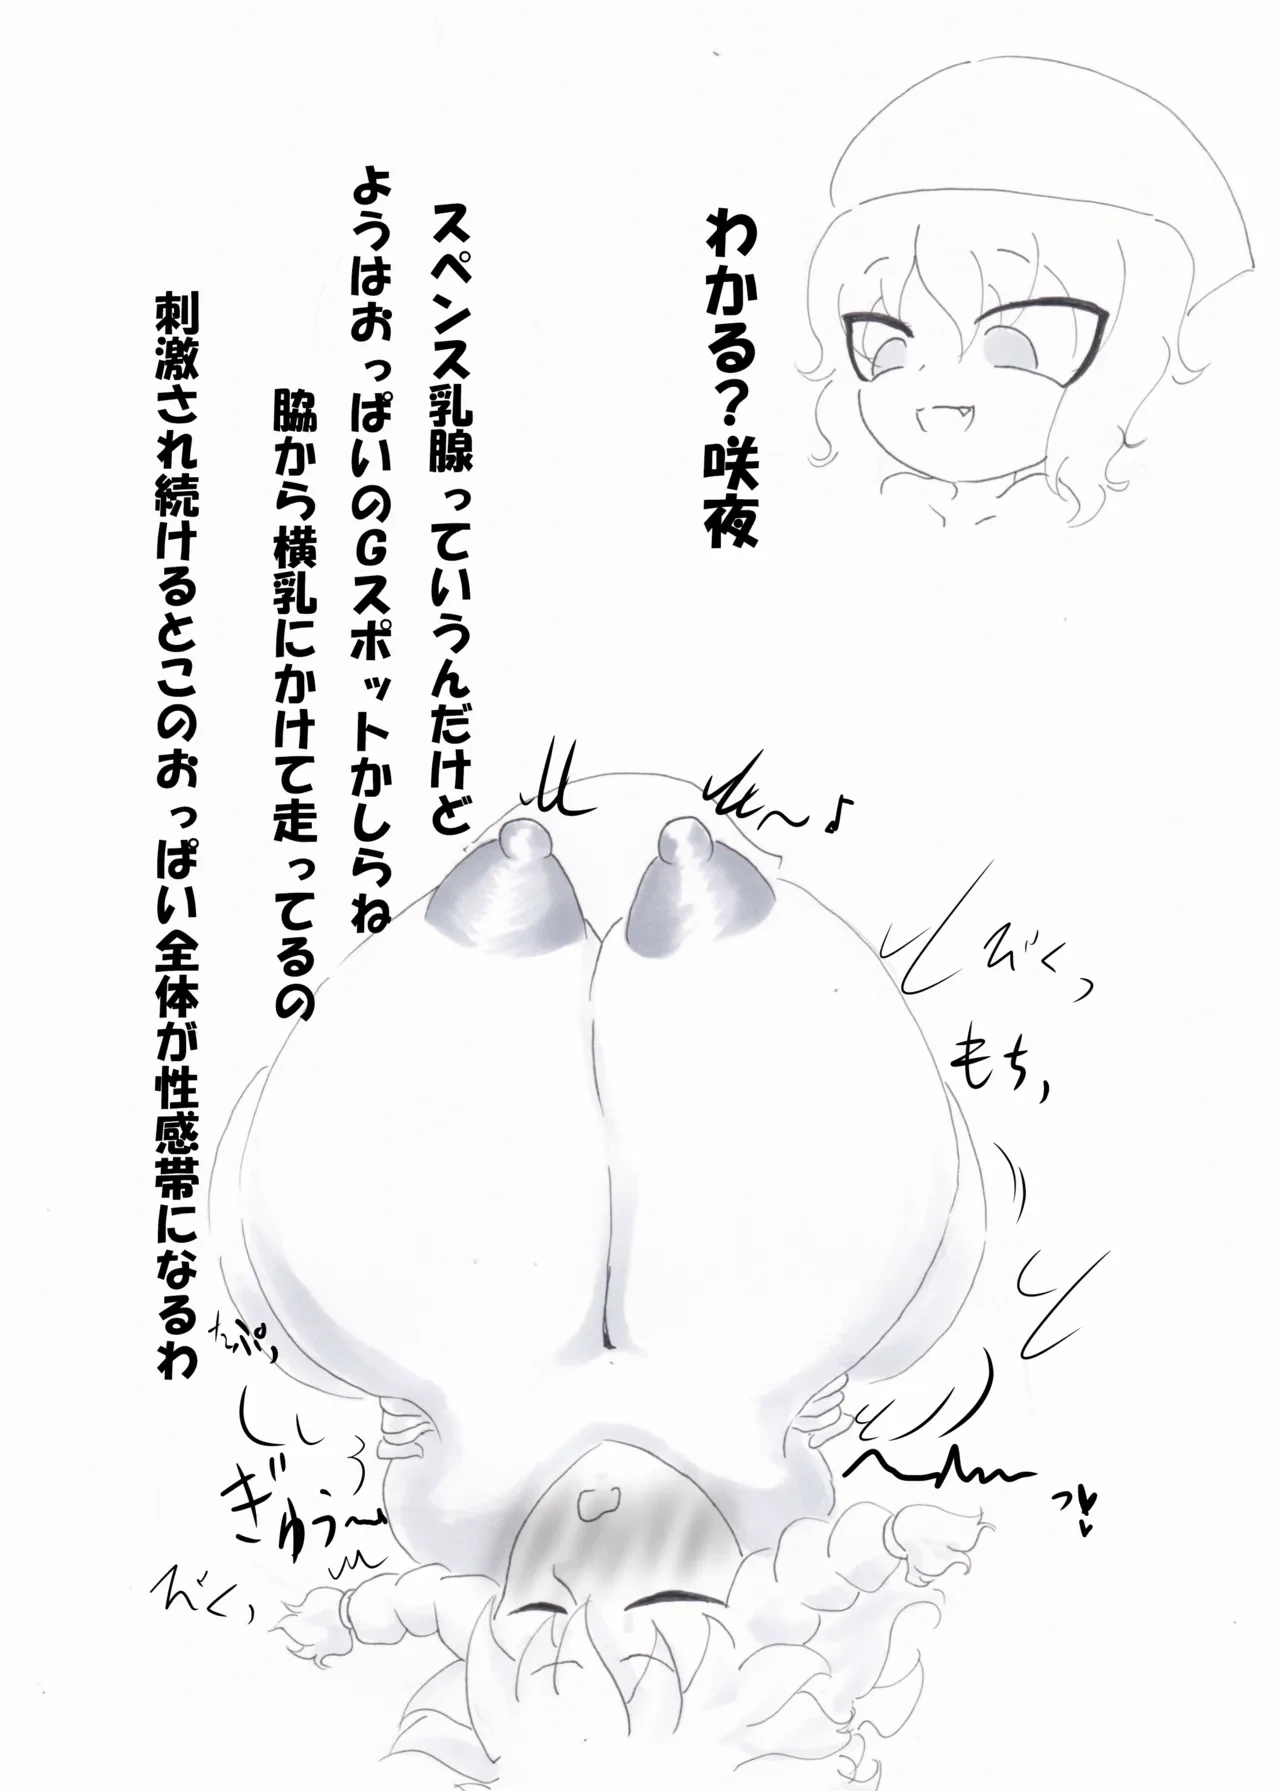 わかる?咲夜
スペンス乳腺っていうんだけど
ようはおっぱいのGスポットかしらね
脇から横乳にかけて走ってるの
刺激され続けるとこのおっぱい全体が性感帯になるわ
びくっ
もち、
たぷっ
ぎゅう~
びくっ